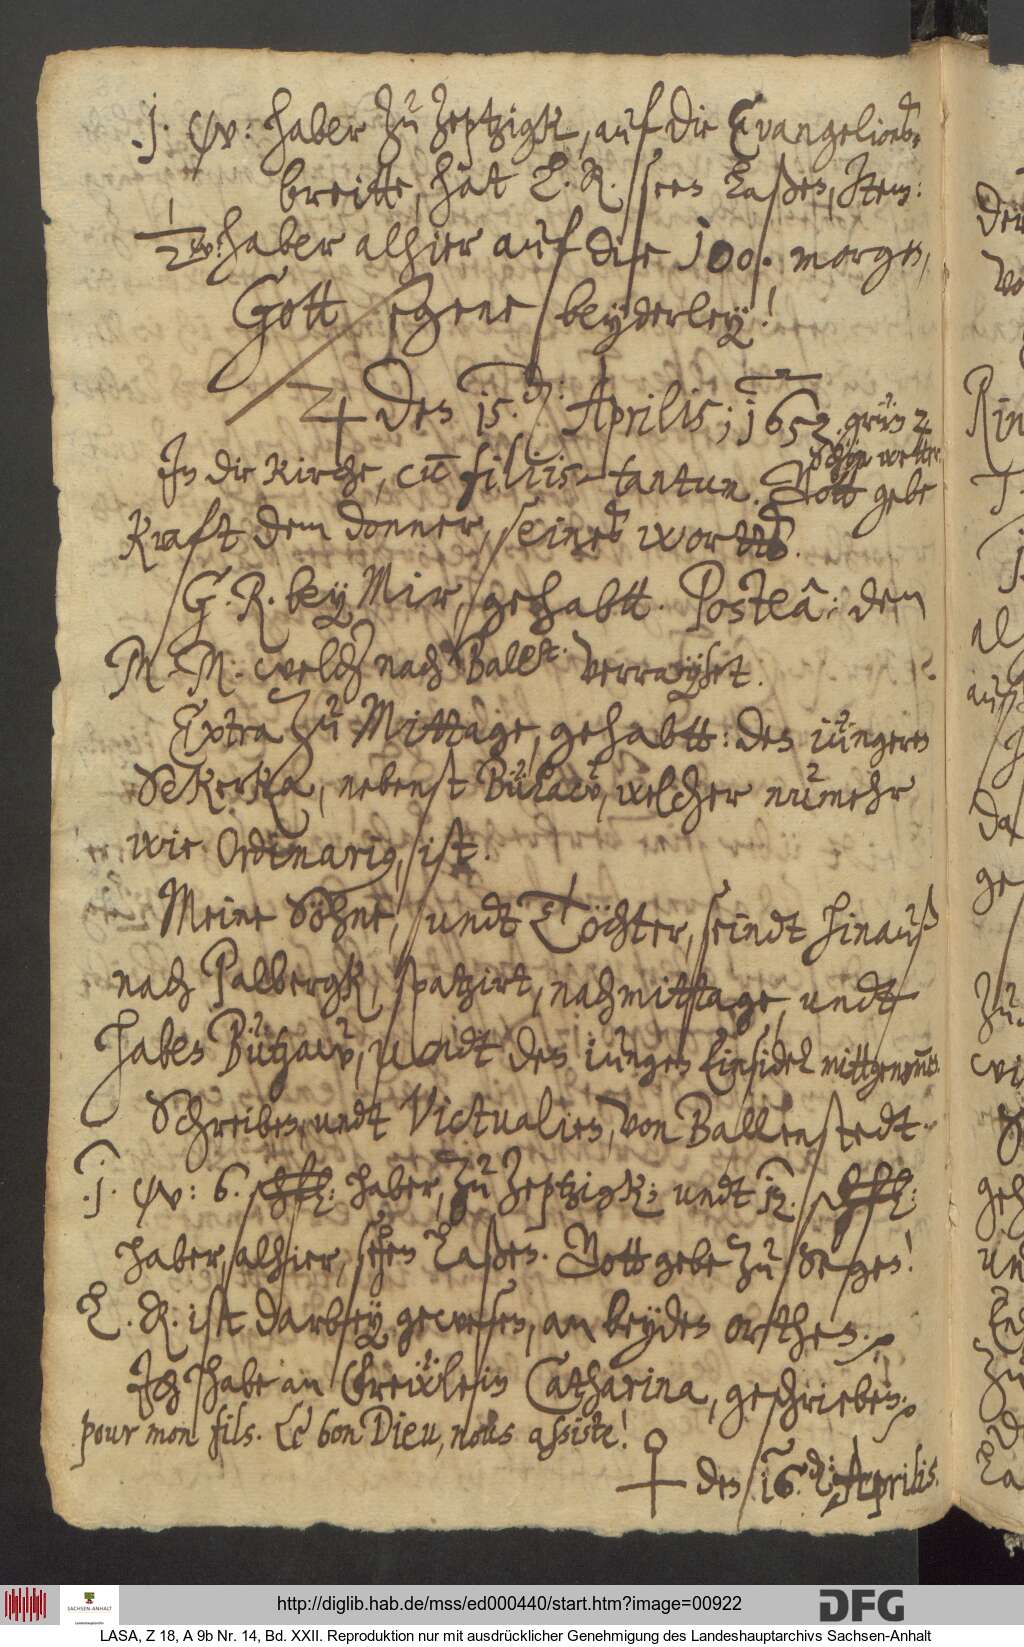 .j. wj: haber zu Zeptzigk, auf die Evangelions-
breitte, hat T. R. seen laßen, Item:
1/2 w: haber alhier auf die 100. morgen,
Gott segene beyderley!
♃ den 15.den: Aprilis; j652. grün 2.
schön wetter
In die kirche, cum filiis tantum. Gott gebe
Kraft dem donner, seines worts.
G. R. bey Mir, gehabtt. Postea: dem
M. M. welch nach Ballst. verrayset.
Extra zu Mittage, gehabtt: den iüngern
Skerka, nebenst Bülaw, welcher numehr
wie Ordinarius, ist.
Meine Söhne, undt Töchter, seindt hinauß
nach Palbergk, spatzirt, nachmittage, undt
haben Bülaw, undt den iungen Einsidel mittgenommen.
Schreiben, undt Victualien, von Ballenstedt.
.j. wj: 6. schfl: haber, zu Zeptzigk: undt 12. schfl:
haber, alhier, sehen laßen. Gott gebe zu Segen!
T. R. ist darbey gewesen, an beyden orthen.
Ich habe an Freülein Catharina, geschrieben.
pour mon fils. Le bon Dieu, nous assiste!
♀ den 16.den: Aprilis.
http://diglib.hab.de/mss/ed000440/start.htm?image=00922
SACHSEN-ANHALT
DFG
LASA, Z 18, A 9b Nr. 14, Bd. XXII. Reproduktion nur mit ausdrücklicher Genehmigung des Landeshauptarchivs Sachsen-Anhalt